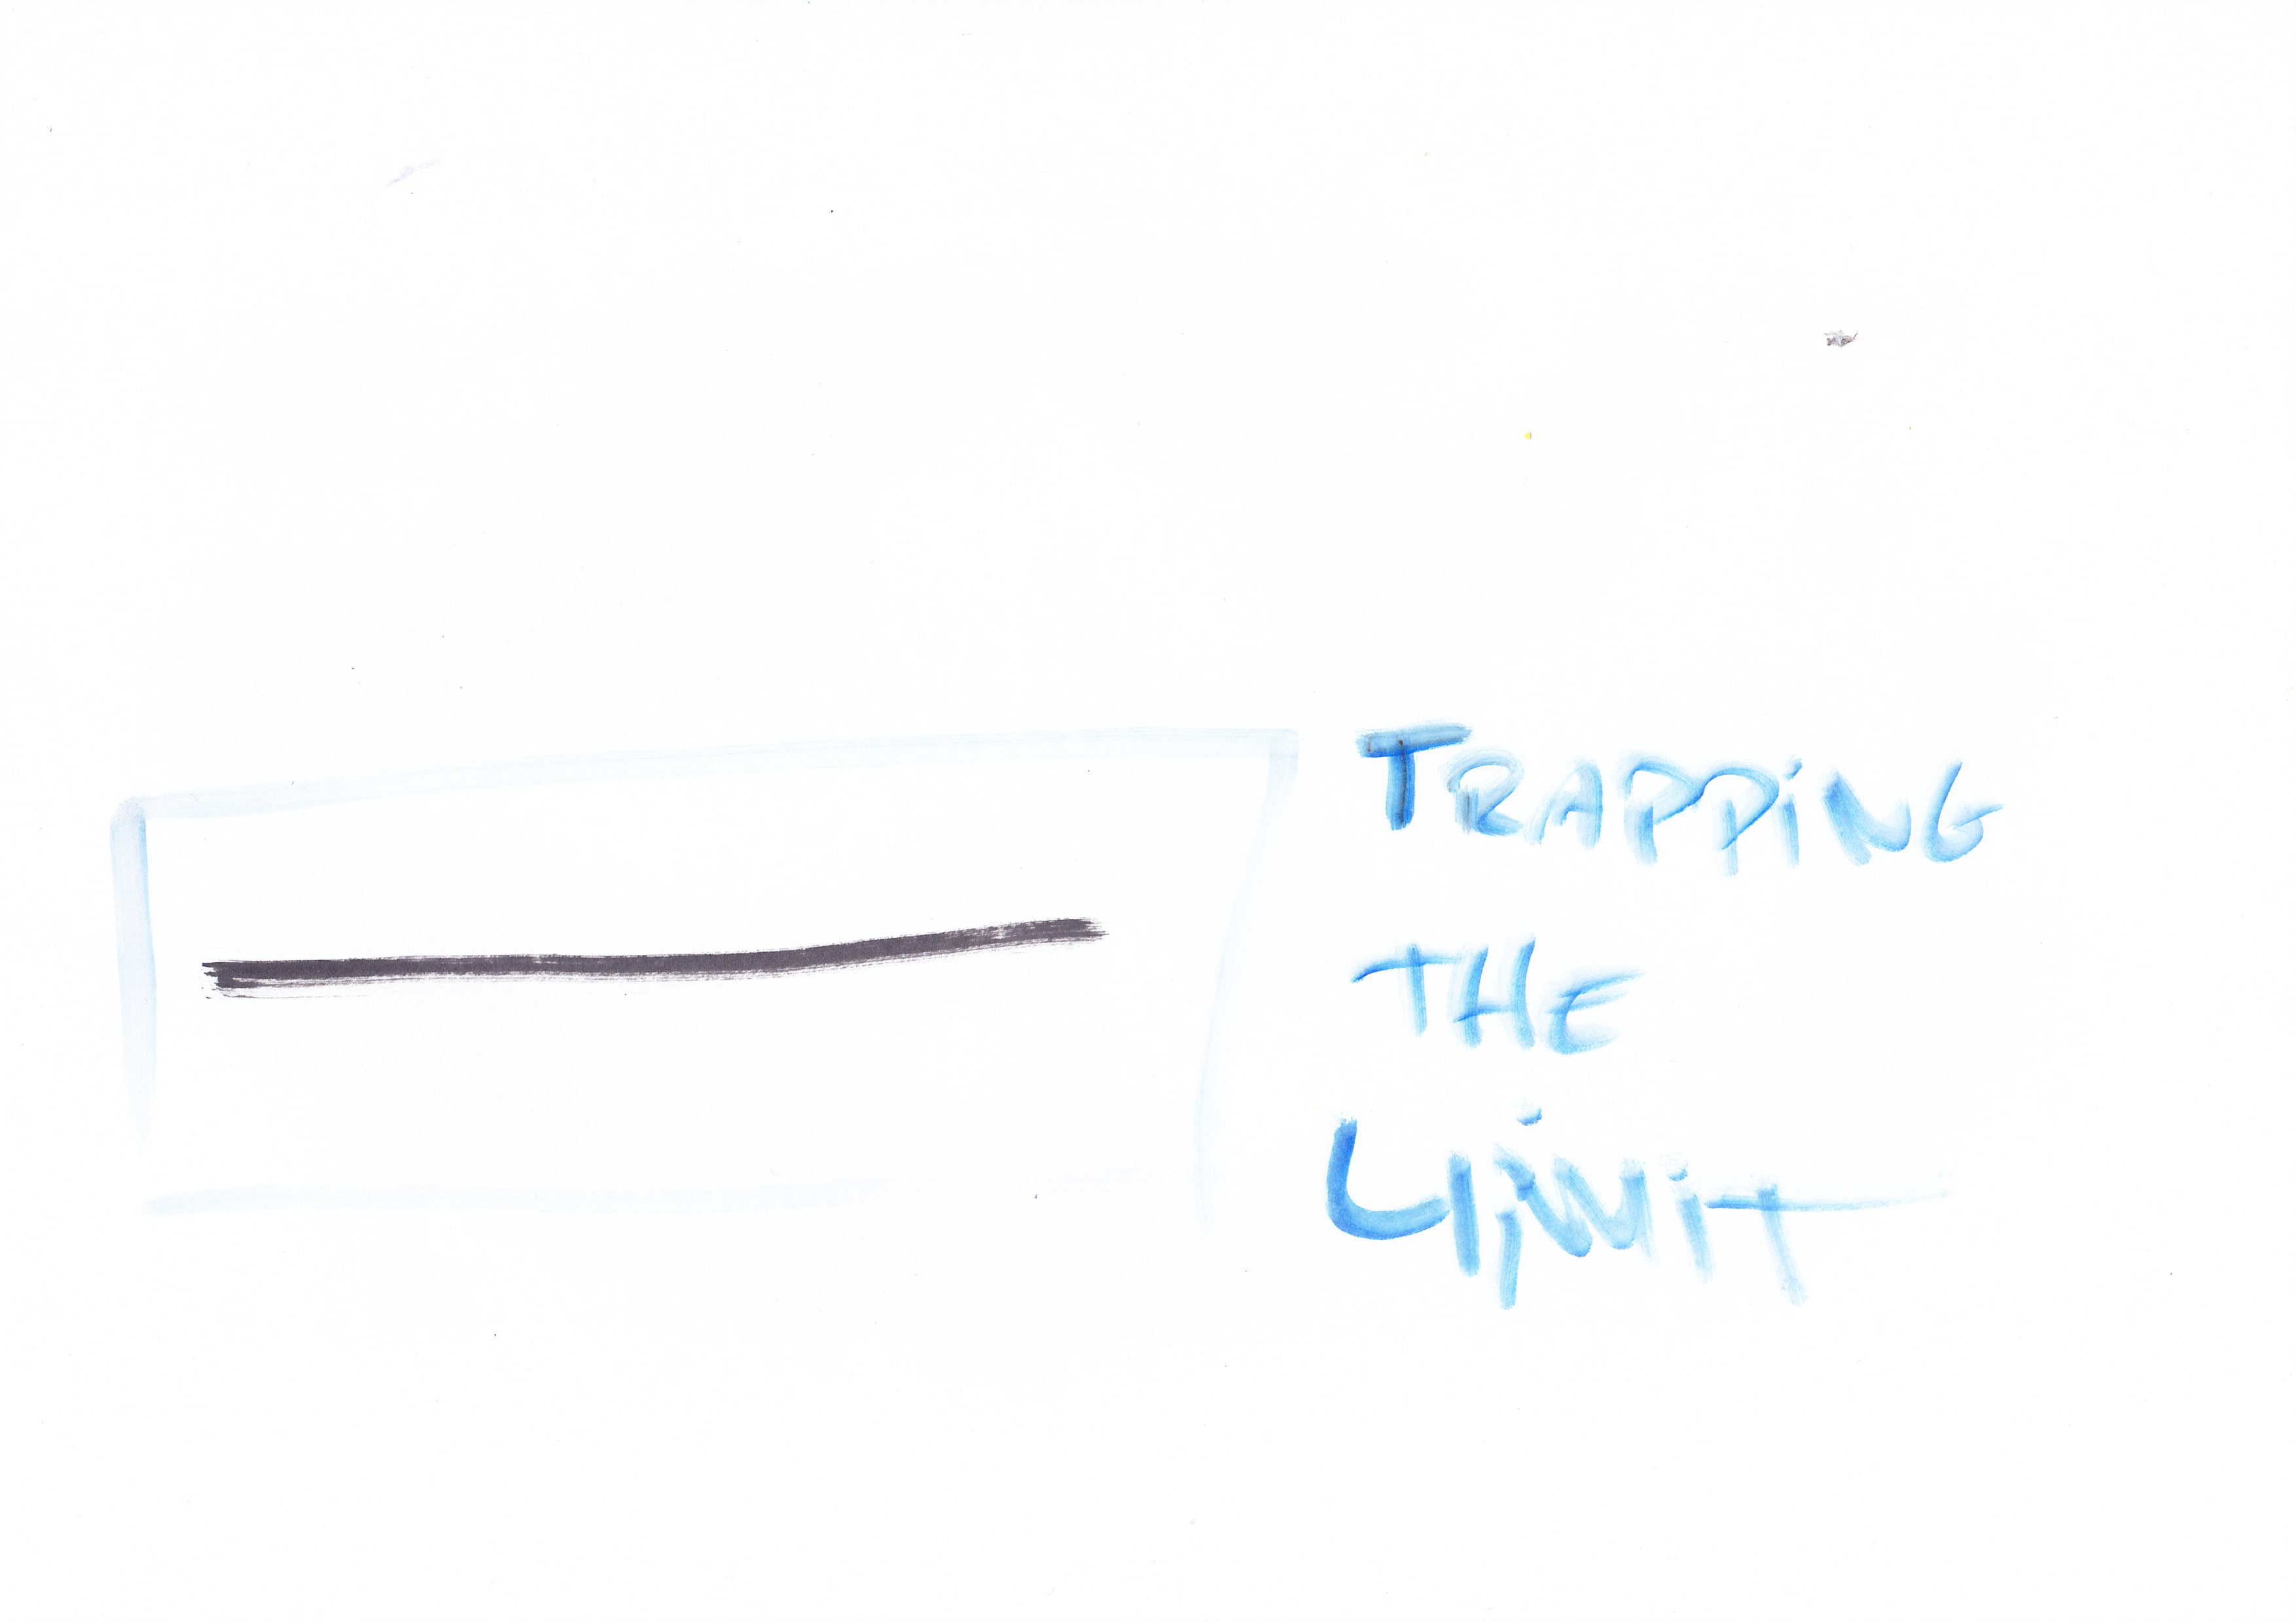 TRAPPiNG
THE
LiMiT